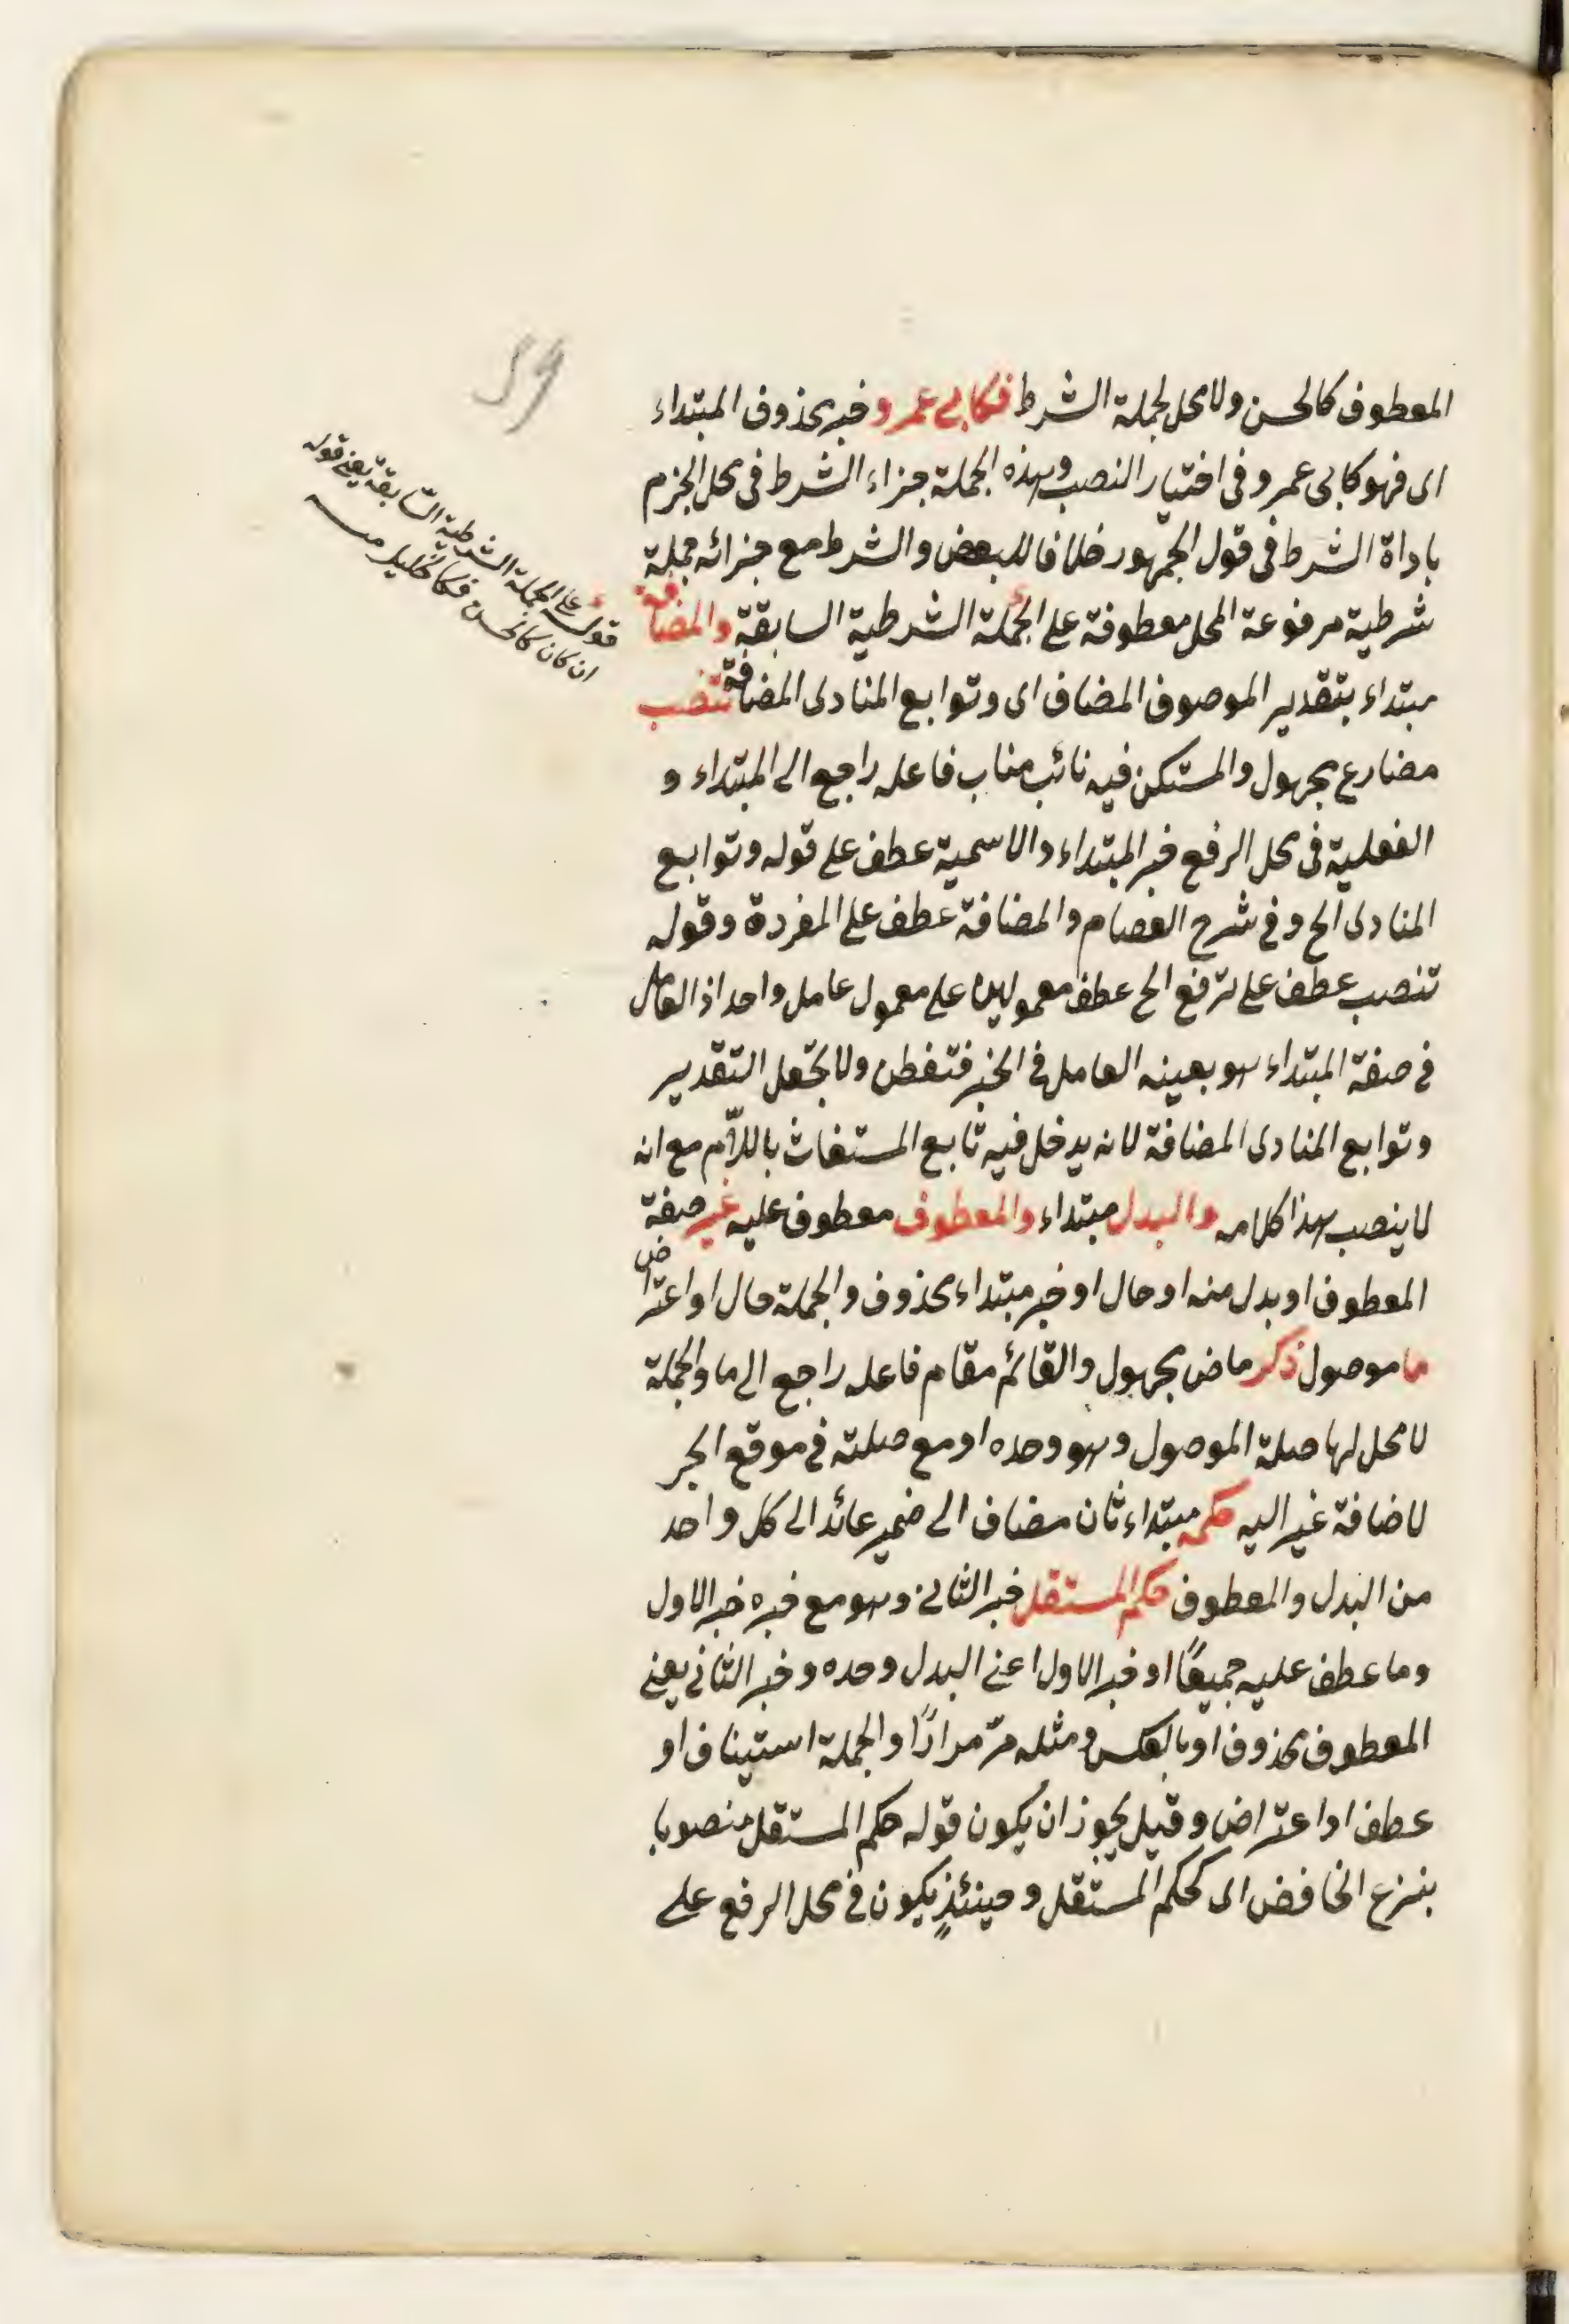 59
المعطوف كالحسن ولا محل لجملة الشرط فكابى عمرو وخبر محذوف المبتداء
اى فهو كابى عمرو فى اختيار النصب وهذه الجملة جزاء الشرط فى محل الجزم
باداة الشرط فى قول الجمهور خلافا للبعض والشرط مع جزائه جملة
شرطية مرفوعة المحل معطوفة على الجملة الشرطية السابقة والمضافة
مبتداء بتقدير الموصوف المضاف اى وتوابع المنادى المضافة تنصب
مضارع مجهول والمستكن فيه نائب مناب فاعله راجع الى المبتداء و
الفعلية فى محل الرفع خبر المبتداء والاسمية عطف على قوله وتوابع
المنادى الخ وفى شرح العصام والمضافة عطف على المفردة وقوله
تنصب عطف على ترفع الخ عطف معمولين على معمول عامل واحد اذ العامل
فى صفة المبتداء هو بعينه العامل فى الخبر فتفطن ولا تجعل التقدير
وتوابع المنادى المضافة لانه يدخل فيه تابع المستغاث باللّام مع انه
لا ينصب هذا كلامه والبدل مبتداء والمعطوف معطوف عليه غير صفة
المعطوف او بدل منه او حال او خبر مبتداء محذوف والجملة حال او اعتراض
ما موصول ذكر ماض مجهول والقائم مقام فاعله راجع الى ما والجملة
لا محل لها صلة الموصول وهو وحده او مع صلته فى موقع الجر
لاضافة غير اليه حكمه مبتداء ثان مضاف الى ضمير عائد الى كل واحد
من البدل والمعطوف حكم المستقل خبر الثانى وهو مع خبره خبر الاول
وما عطف عليه جميعًا او خبر الاول اعنى البدل وحده وخبر الثانى يعنى
المعطوف محذوف او بالعكس ومثله مرّ مرارًا والجملة استيناف او
عطف او اعتراض وقيل يجوز ان يكون قوله حكم المستقل منصوبا
بنزع الخافض اى كحكم المستقل وحينئذٍ يكون فى محل الرفع على
قوله على الجملة الشرطية السّابقة يعنى قوله
ان كان كالحسن فكالخليل منه